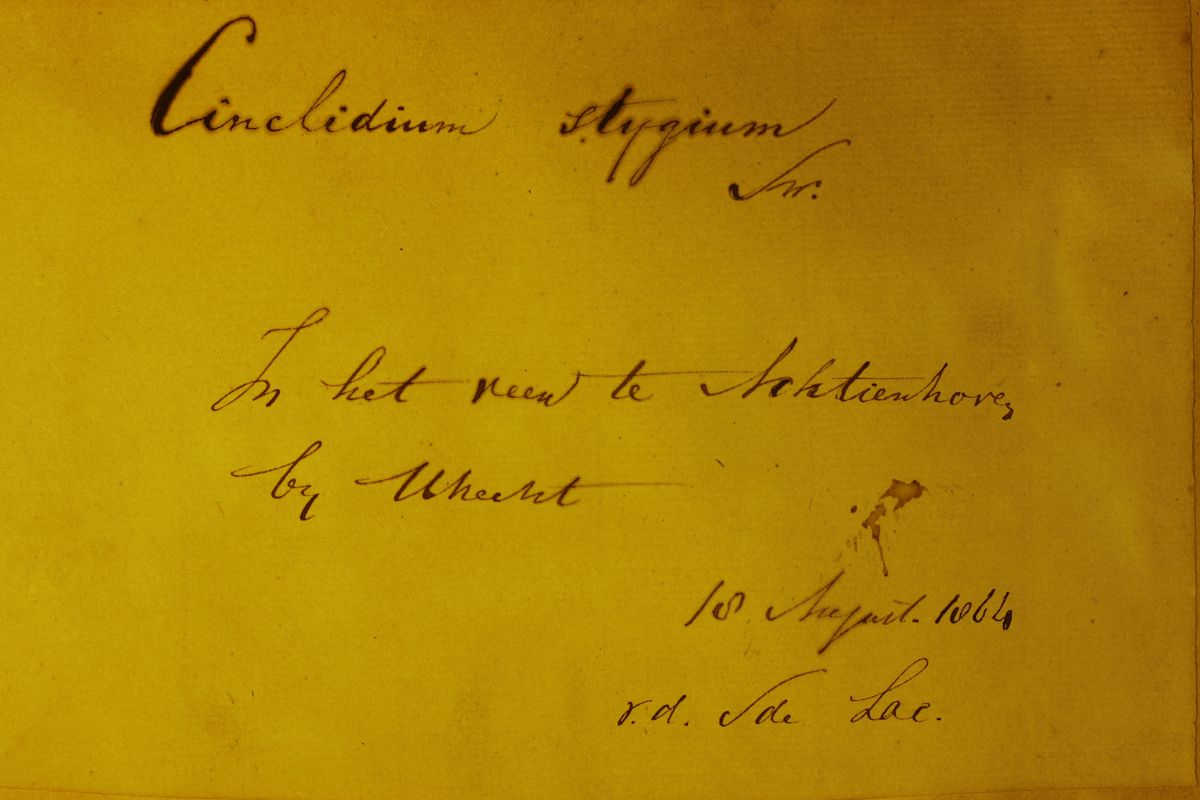 Cinclidium stygium
Sw.
In het veen te Achtienhoven
by Utrecht
18 August. 1864
v.d. Sde Lac.